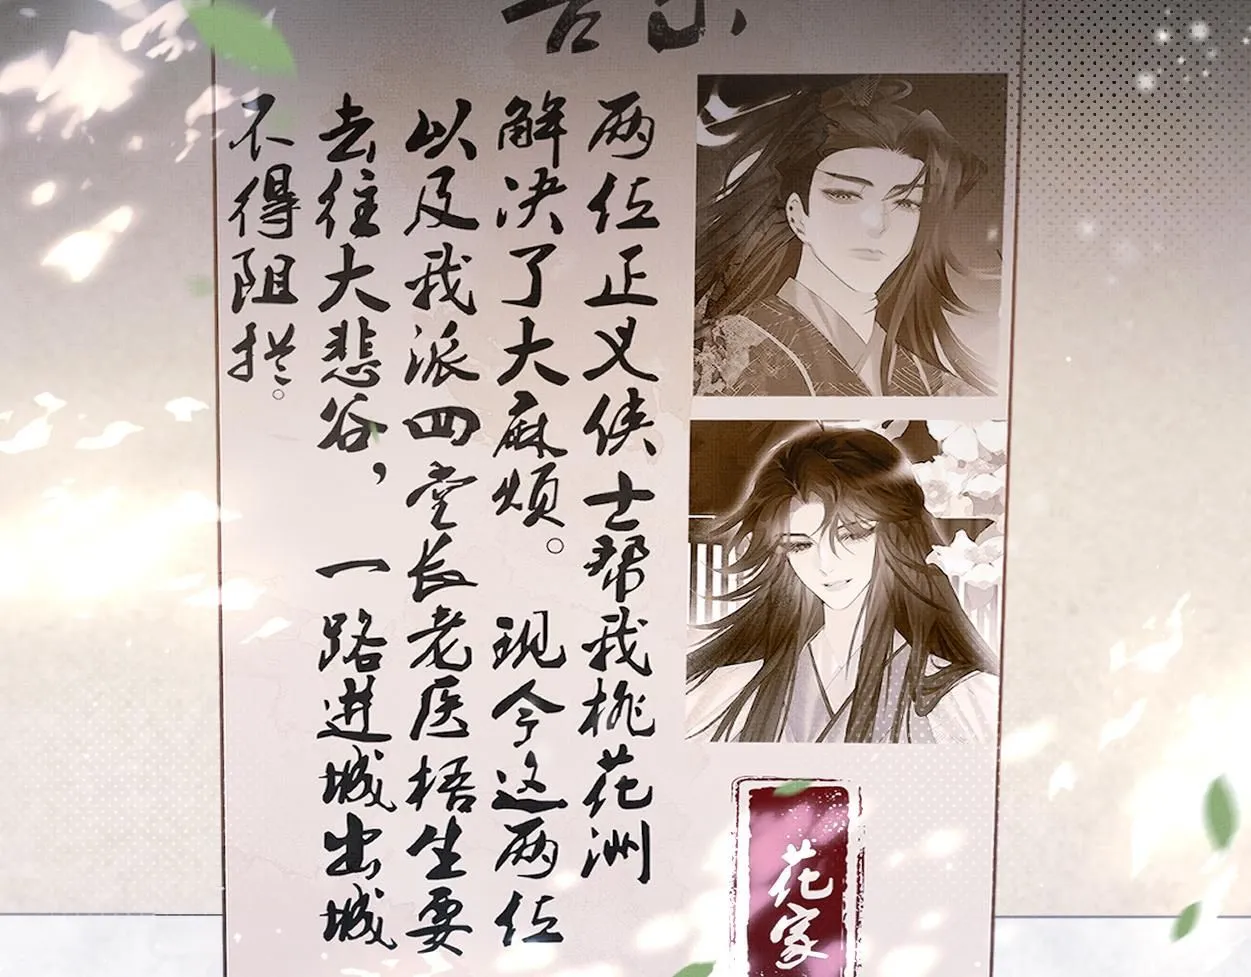 告示
两位正义侠士帮我桃花洲
解决了大麻烦。 现今这两位
以及我派四堂长老医梧生要
去往大悲谷, 一路进城出城
不得阻拦。
花家